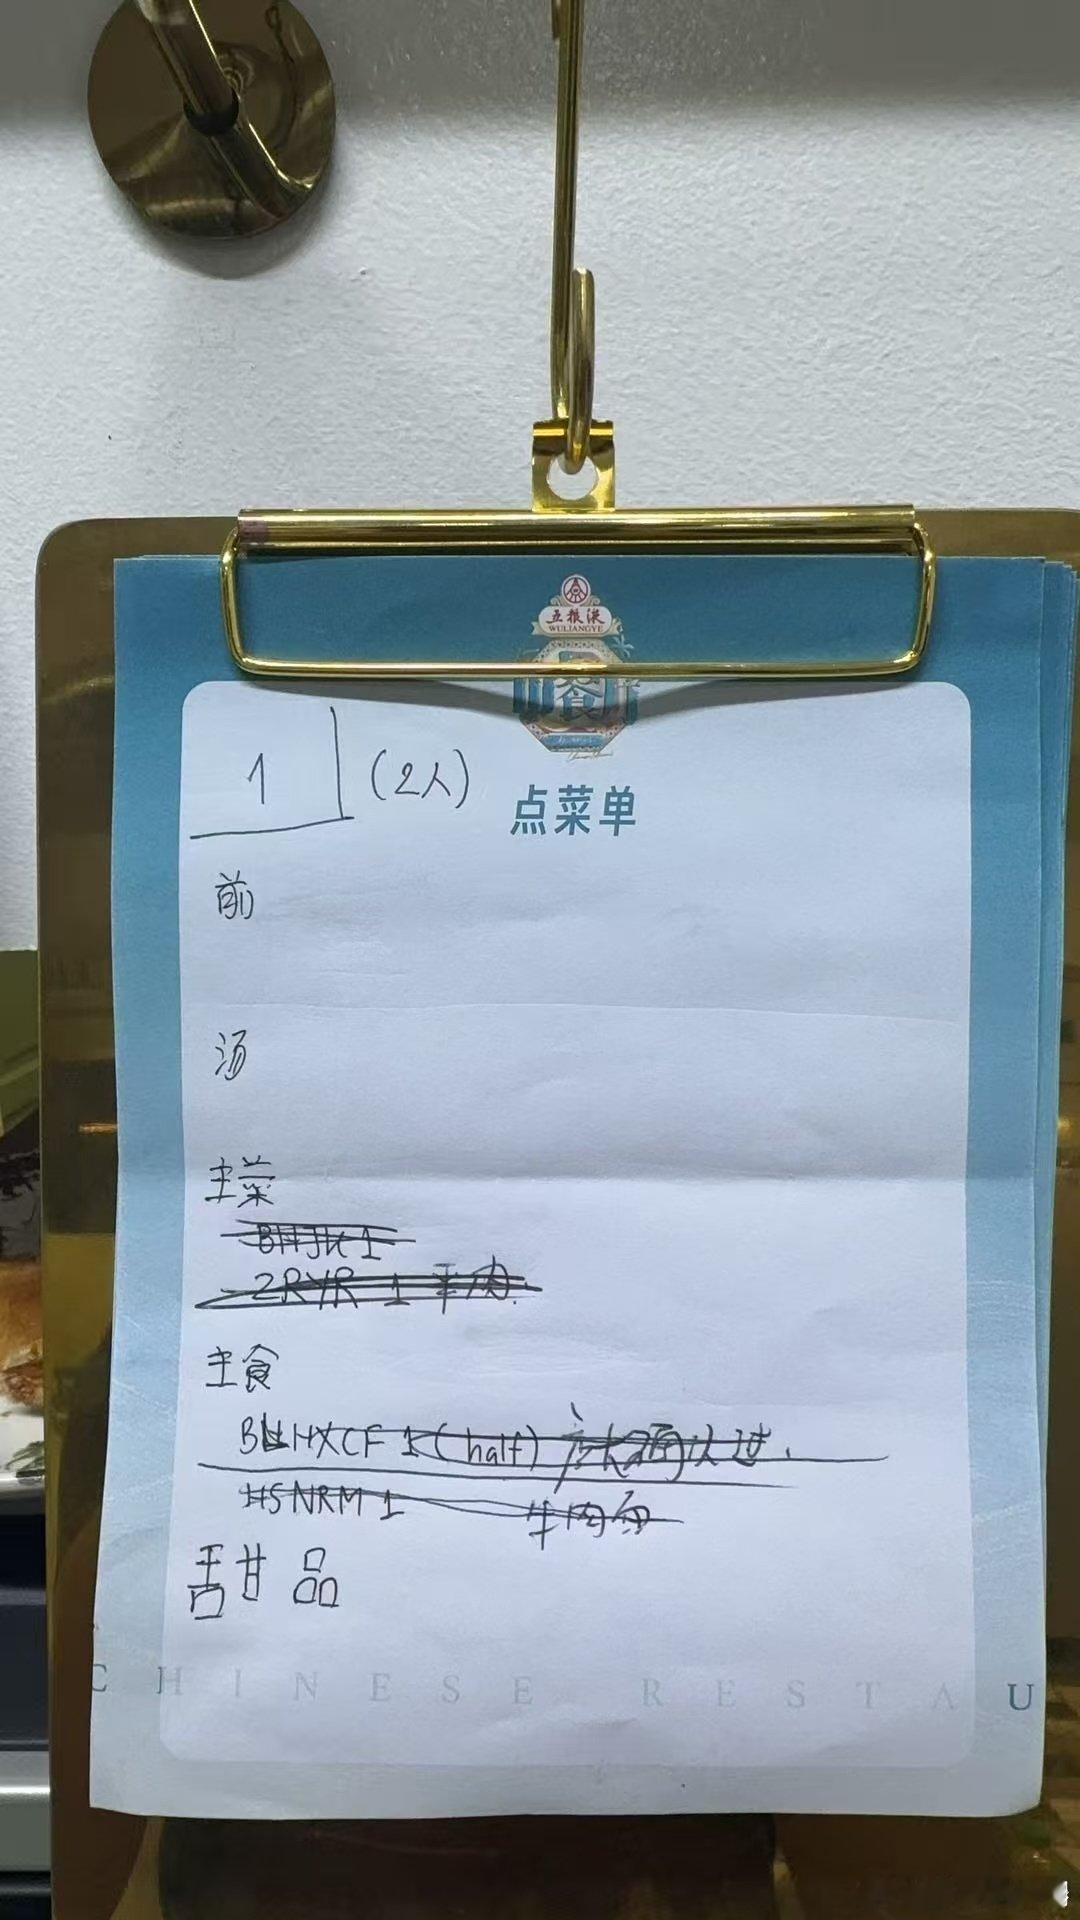 五粮液
WULIANGYE
1 (2人)
点菜单
前
汤
主菜
BHJK 1
ZRYR 1 羊肉
主食
BLHXCF 1 (half)
HSNRM 1 牛肉面
甜品
CHINESE RESTAU